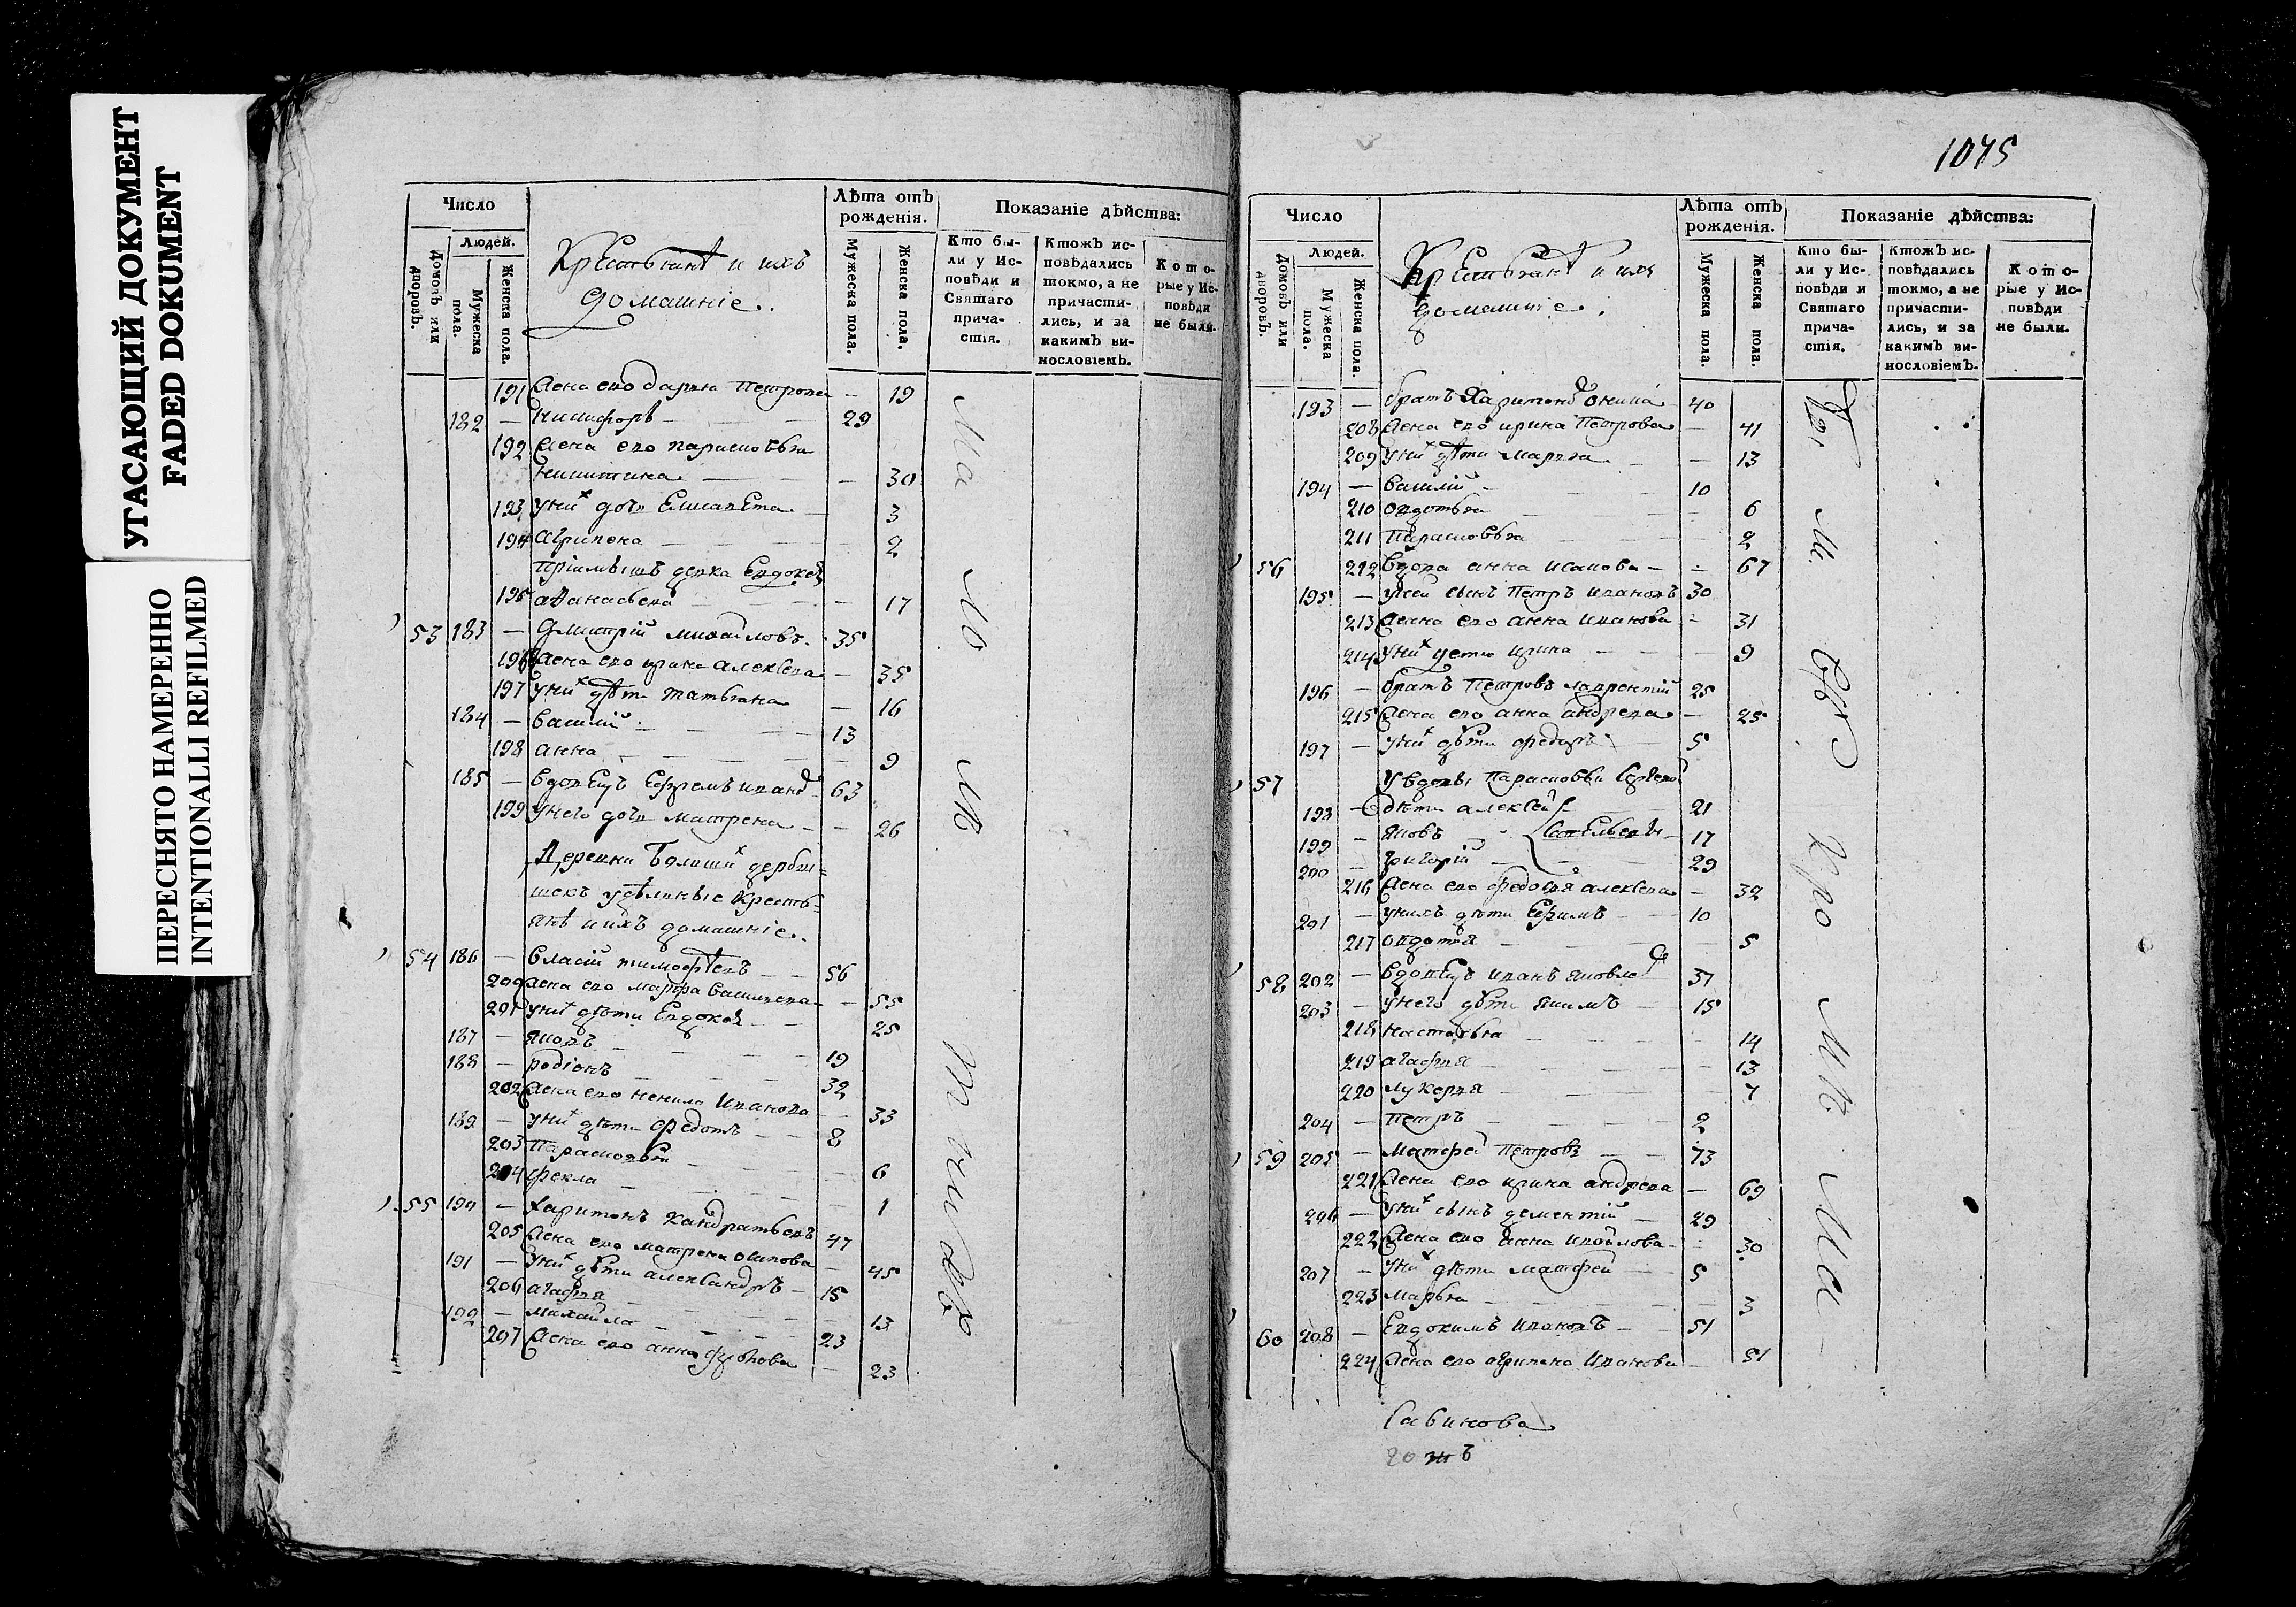 УГАСАЮЩИЙ ДОКУМЕНТ
FADED DOKUMENT
ПЕРЕСНЯТО НАМЕРЕННО
INTENTIONALLI REFILMED
Число
Людей.
Домовъ или дворовъ.
Мужеска пола.
Женска пола.
Крестьянѣ и ихъ
домашніе.
Лѣта отъ рожденія.
Мужеска пола.
Женска пола.
Показаніе дѣйства:
Кто были у Исповѣди и Святаго причастія.
Ктожъ исповѣдались токмо, а не причастились, и за какимъ винословіемъ.
Которые у Исповѣди не были.
191 Жена его дарья Петрова — 19
182 — Никифоръ — 29
192 Жена его парасковья
Никитина — 30
193 У них дочь Елисавета — 3
194 Агрипена — 2
Пріимышъ девка Евдокея
195 афанасьева — 17
53 183 — Дмитрій михайловъ 35
196 Жена его ирина алексева — 35
197 У них дѣти татьяна — 16
184 — Василий — 13
198 анна — 9
185 — Вдовецъ Ефремъ ивано 63
199 У него дочь матрена — 26
Деревни Большихъ дербы=
шекъ удѣльные Кресть=
янѣ и ихъ домашніе.
54 186 — Власій тимофѣевъ — 56
200 Жена его марфа Васильева — 55
201 У них дѣти Евдокея — 25
187 — Яковъ — 19
188 — родіонъ — 32
202 Жена его ненила Иванова — 33
189 — У них дѣти федотъ — 8
203 Парасковья — 6
204 фекла — 1
55 190 — Харитонъ Кандратьевъ 47
205 Жена его матрена осипова — 45
191 — У них дѣти александръ — 15
206 агафья — 13
192 — михайло — 23
207 Жена его анна — 23
1075
Число
Людей.
Домовъ или дворовъ.
Мужеска пола.
Женска пола.
Крестьянѣ и ихъ
домашніе.
Лѣта отъ рожденія.
Мужеска пола.
Женска пола.
Показаніе дѣйства:
Кто были у Исповѣди и Святаго причастія.
Ктожъ исповѣдались токмо, а не причастились, и за какимъ винословіемъ.
Которые у Исповѣди не были.
193 — братъ Харитоно 40
208 Жена его ирина Петрова — 41
209 У них дѣти марья — 13
194 — Василій — 10
210 овдотья — 6
211 Парасковья — 2
56 212 Вдова анна исакова — 67
195 — у ней сынъ Петръ ивановъ 30
213 Жена его анна иванова — 31
214 У них дети ирина — 9
196 — братъ Петровъ лаврентій 25
215 Жена его анна андрева — 25
197 — У них дѣти федоръ — 5
57 У вдовы Парасковьи
198 — дѣти алексей — 21
199 — Яковъ — Савельевы 17
200 — григорій — 29
216 Жена его федосья алексева — 32
201 — У нихъ дѣти Ефимъ — 10
217 овдотья — 5
58 202 — Вдовецъ иванъ яковле 37
203 — У него дѣти якимъ — 15
218 настасья — 14
219 агафья — 13
220 лукерья — 7
204 — Петръ — 2
59 205 — Матфей Петровъ — 73
221 Жена его ирина андрева — 69
206 — У них сынъ дементій — 29
222 Жена его анна — 30
207 — У них дѣти матфей — 5
223 марья — 3
60 208 — Евдокимъ ивановъ — 51
224 Жена его огрипена Иванова — 51
Савинова